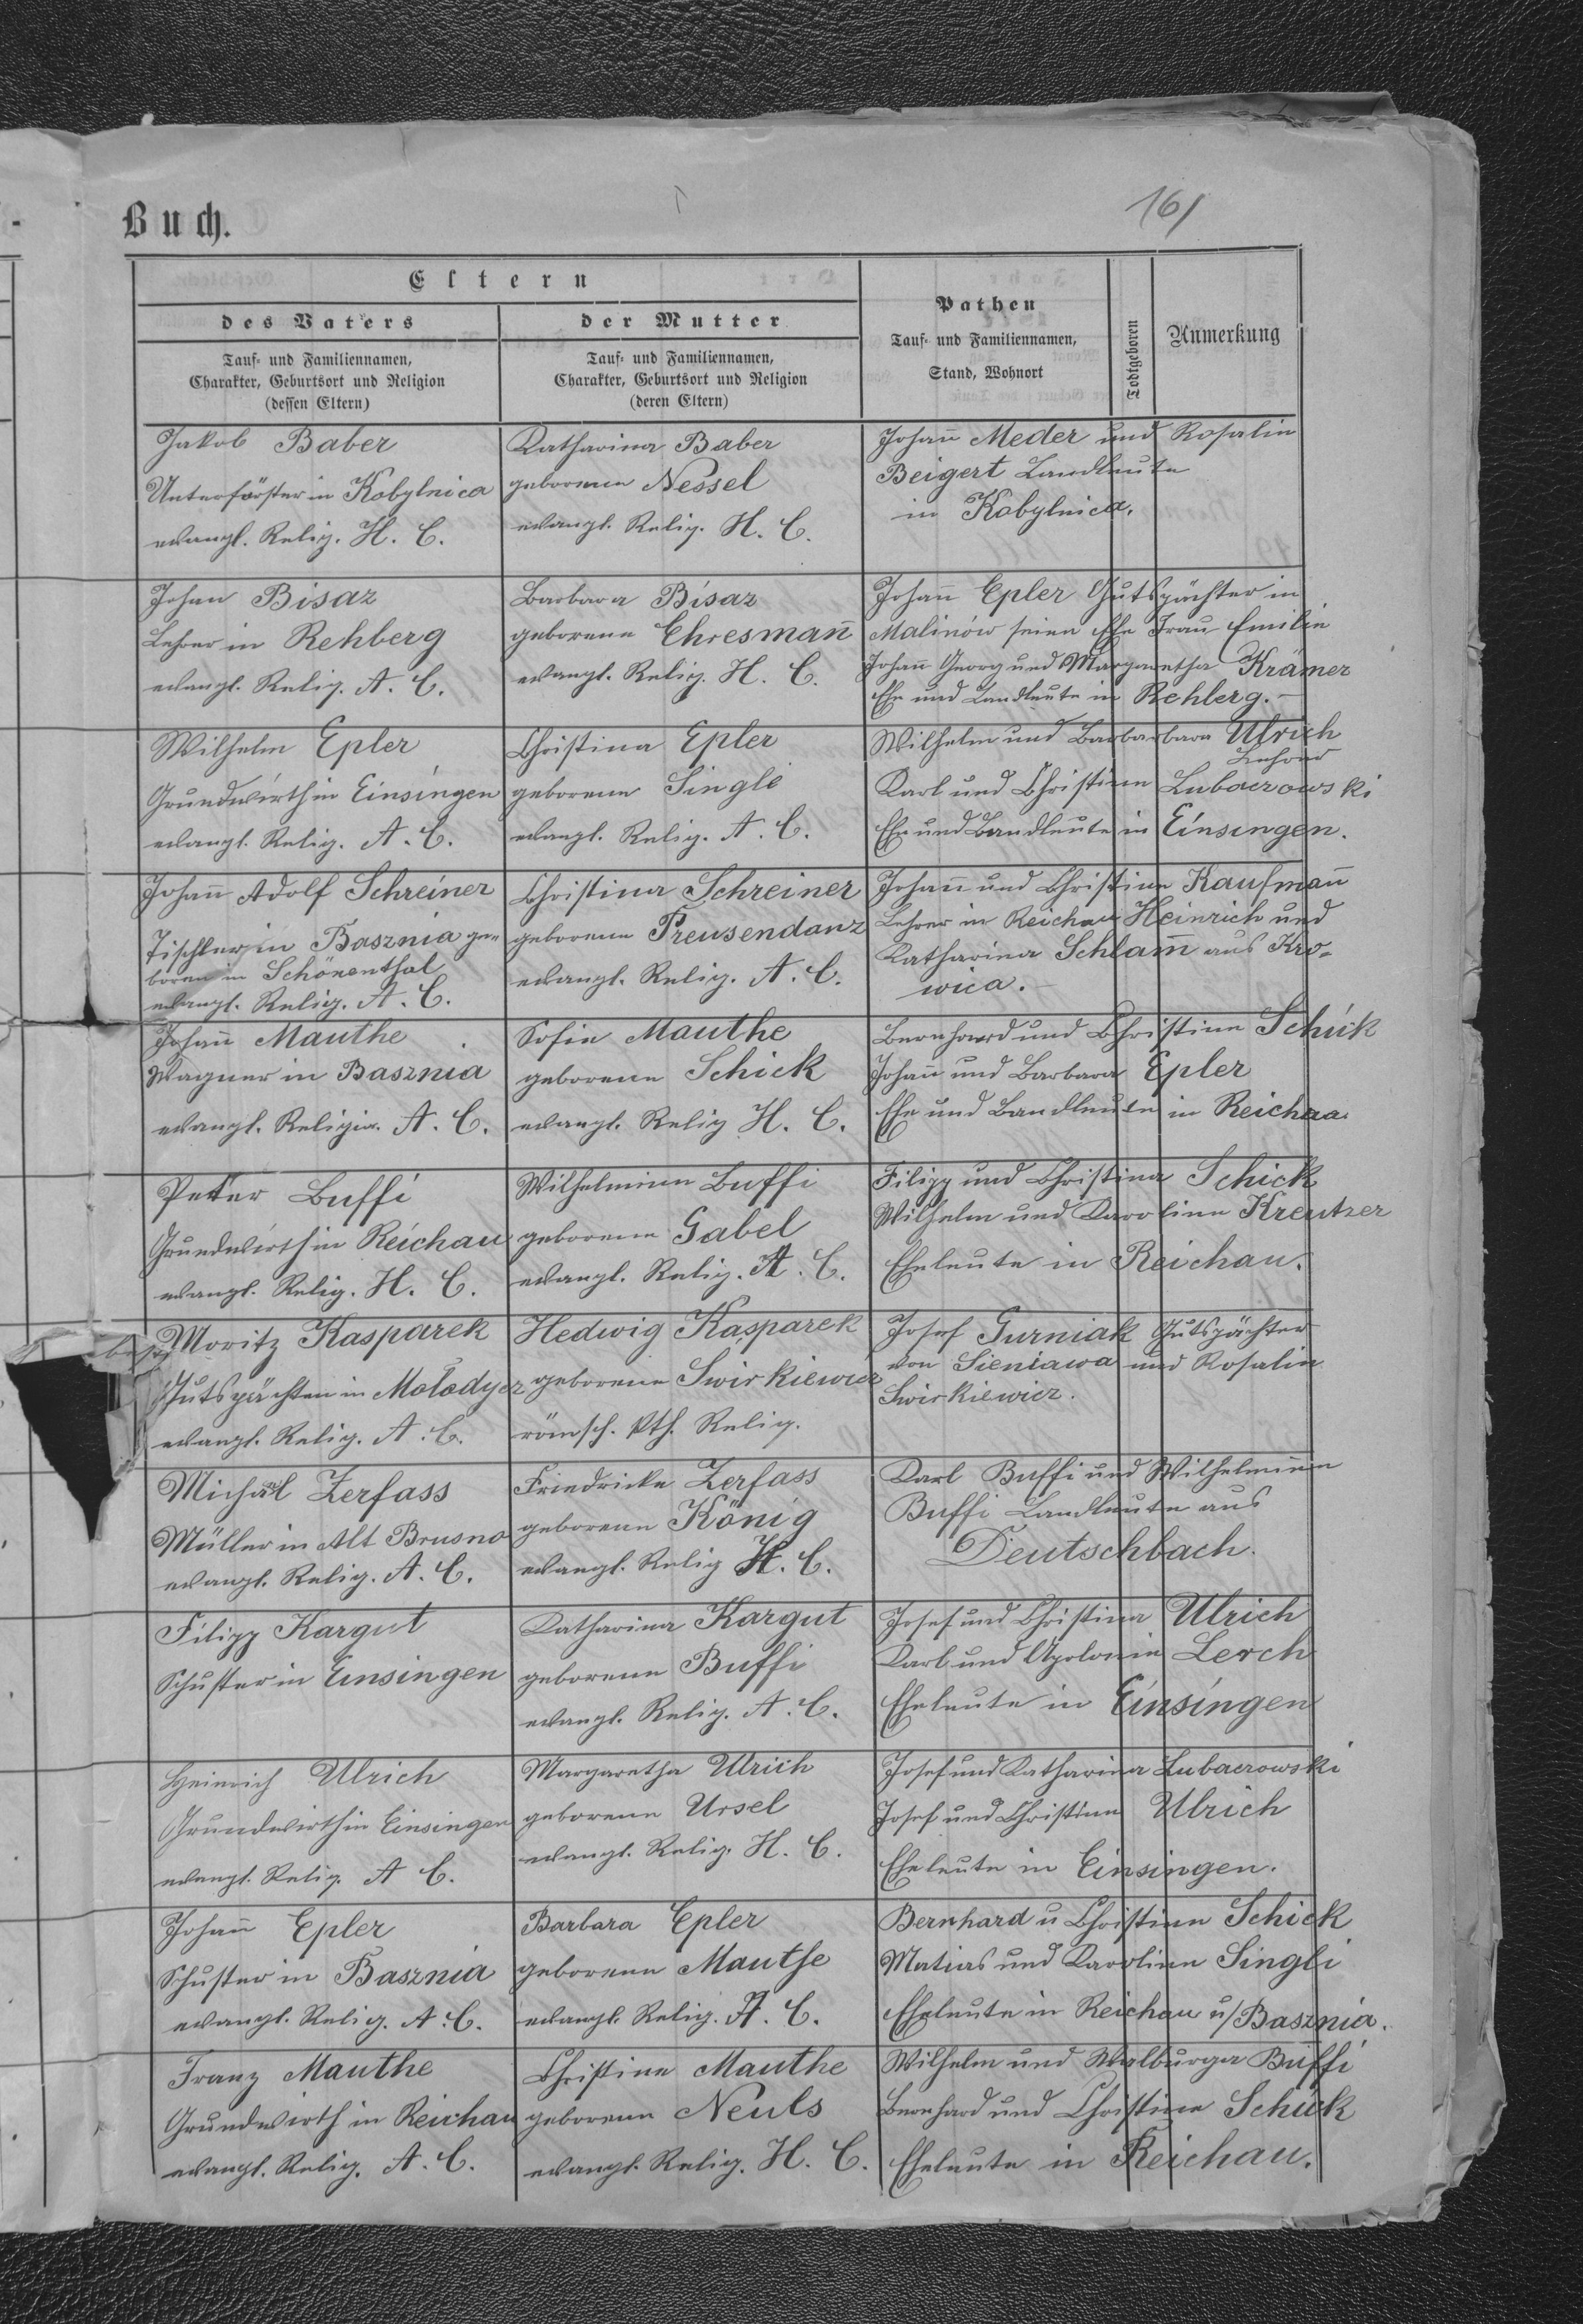 161
Buch.
Eltern
des Vaters
der Mutter
Pathen
Todtgeboren
Anmerkung
Tauf- und Familiennamen,
Charakter, Geburtsort und Religion
(dessen Eltern)
Tauf- und Familiennamen,
Charakter, Geburtsort und Religion
(deren Eltern)
Tauf- und Familiennamen,
Stand, Wohnort
Jakob Baber
Unterförster in Kobylnica
evangl. Relig. H. C.
Katharina Baber
geborene Nessel
evangl. Relig. H. C.
Johañ Meder und Rosalie
Beigert Landleute
in Kobylnica.
Johan Bisaz
Lehrer in Rehberg
evangl. Relig. A. C.
Barbara Bisaz
geborene Ehresmañ
evangl. Relig. H. C.
Johañ Epler Gutspächter in
Malinów seine Ehe Frau Emilie
Johañ Georg und Margaretha Krämer
Ehe und Landleute in Rehlerg.
Wilhelm Epler
Grundwirth in Einsingen
evangl. Relig. A. C.
Christina Epler
geborene Singli
evangl. Relig. A. C.
Wilhelm und Barbarbara Ulrich
Lehrer
Karl und Christine Lubaczowski
Ehe und Landleute in Einsingen.
Johañ Adolf Schreiner
Tischler in Basznia ge=
boren in Schönenthal
evangl. Relig. A. C.
Christina Schreiner
geborene Preusendanz
evangl. Relig. A. C.
Johañ und Christine Kaufmañ
Lehrer in Reichau Heinrich und
Katharina Schlam̃ aus Kro=
wica.
Johañ Mauthe
Wagner in Basznia
evangl. Religio. A. C.
Sofie Mauthe
geborene Schick
evangl. Relig H. C.
Bernhard und Christine Schick
Johañ und Barbara Epler
Ehe und Landleute in Reichaa.
Peter Buffi
Grundwirth in Reichau
evangl. Relig. H. C.
Wilhelmine Buffi
geborene Gabel
evangl. Relig. A. C.
Filipp und Christina Schick
Wilhelm und Karoline Kreutzer
Eheleute in Reichau.
Moritz Kasparek
Gutspächter in Mołodycz
evangl. Relig. A. C.
Hedwig Kasparek
geborene Swirkiewicz
römsch. kth. Relig.
Josef Gurniak Gutspächter
von Sieniawa und Rosalie
Swirkiewicz.
Michael Zerfass
Müller in Alt Brusno
evangl. Relig. A. C.
Friedricke Zerfass
geborene König
evangl. Relig H. C.
Karl Buffi und Wilhelmine
Buffi Landleute aus
Deutschbach.
Filipp Kargut
Schuster in Einsingen
Katharina Kargut
geborene Buffi
evangl. Relig. A. C.
Josef und Christina Ulrich
Karl und Apolonie Lerch
Eheleute in Einsingen
Heinrich Ulrich
Grundwirth in Einsingen
evangl. Relig. A C.
Margaretha Ulrich
geborene Ursel
evangl. Relig. H. C.
Josef und Katharina Lubaczowski
Josef und Christine Ulrich
Eheleute in Einsingen.
Johañ Epler
Schuster in Basznia
evangl. Relig. A. C.
Barbara Epler
geborene Mauthe
evangl. Relig. A. C.
Bernhard u Christine Schick
Matias und Karoline Singli
Eheleute in Reichau u/ Basznia.
Franz Mauthe
Grundwirth in Reichau
evangl. Relig. A. C.
Christine Mauthe
geborene Neuls
evangl. Relig. H. C.
Wilhelm und Walburga Buffi
Bernhard und Christine Schick
Eheleute in Reichau.